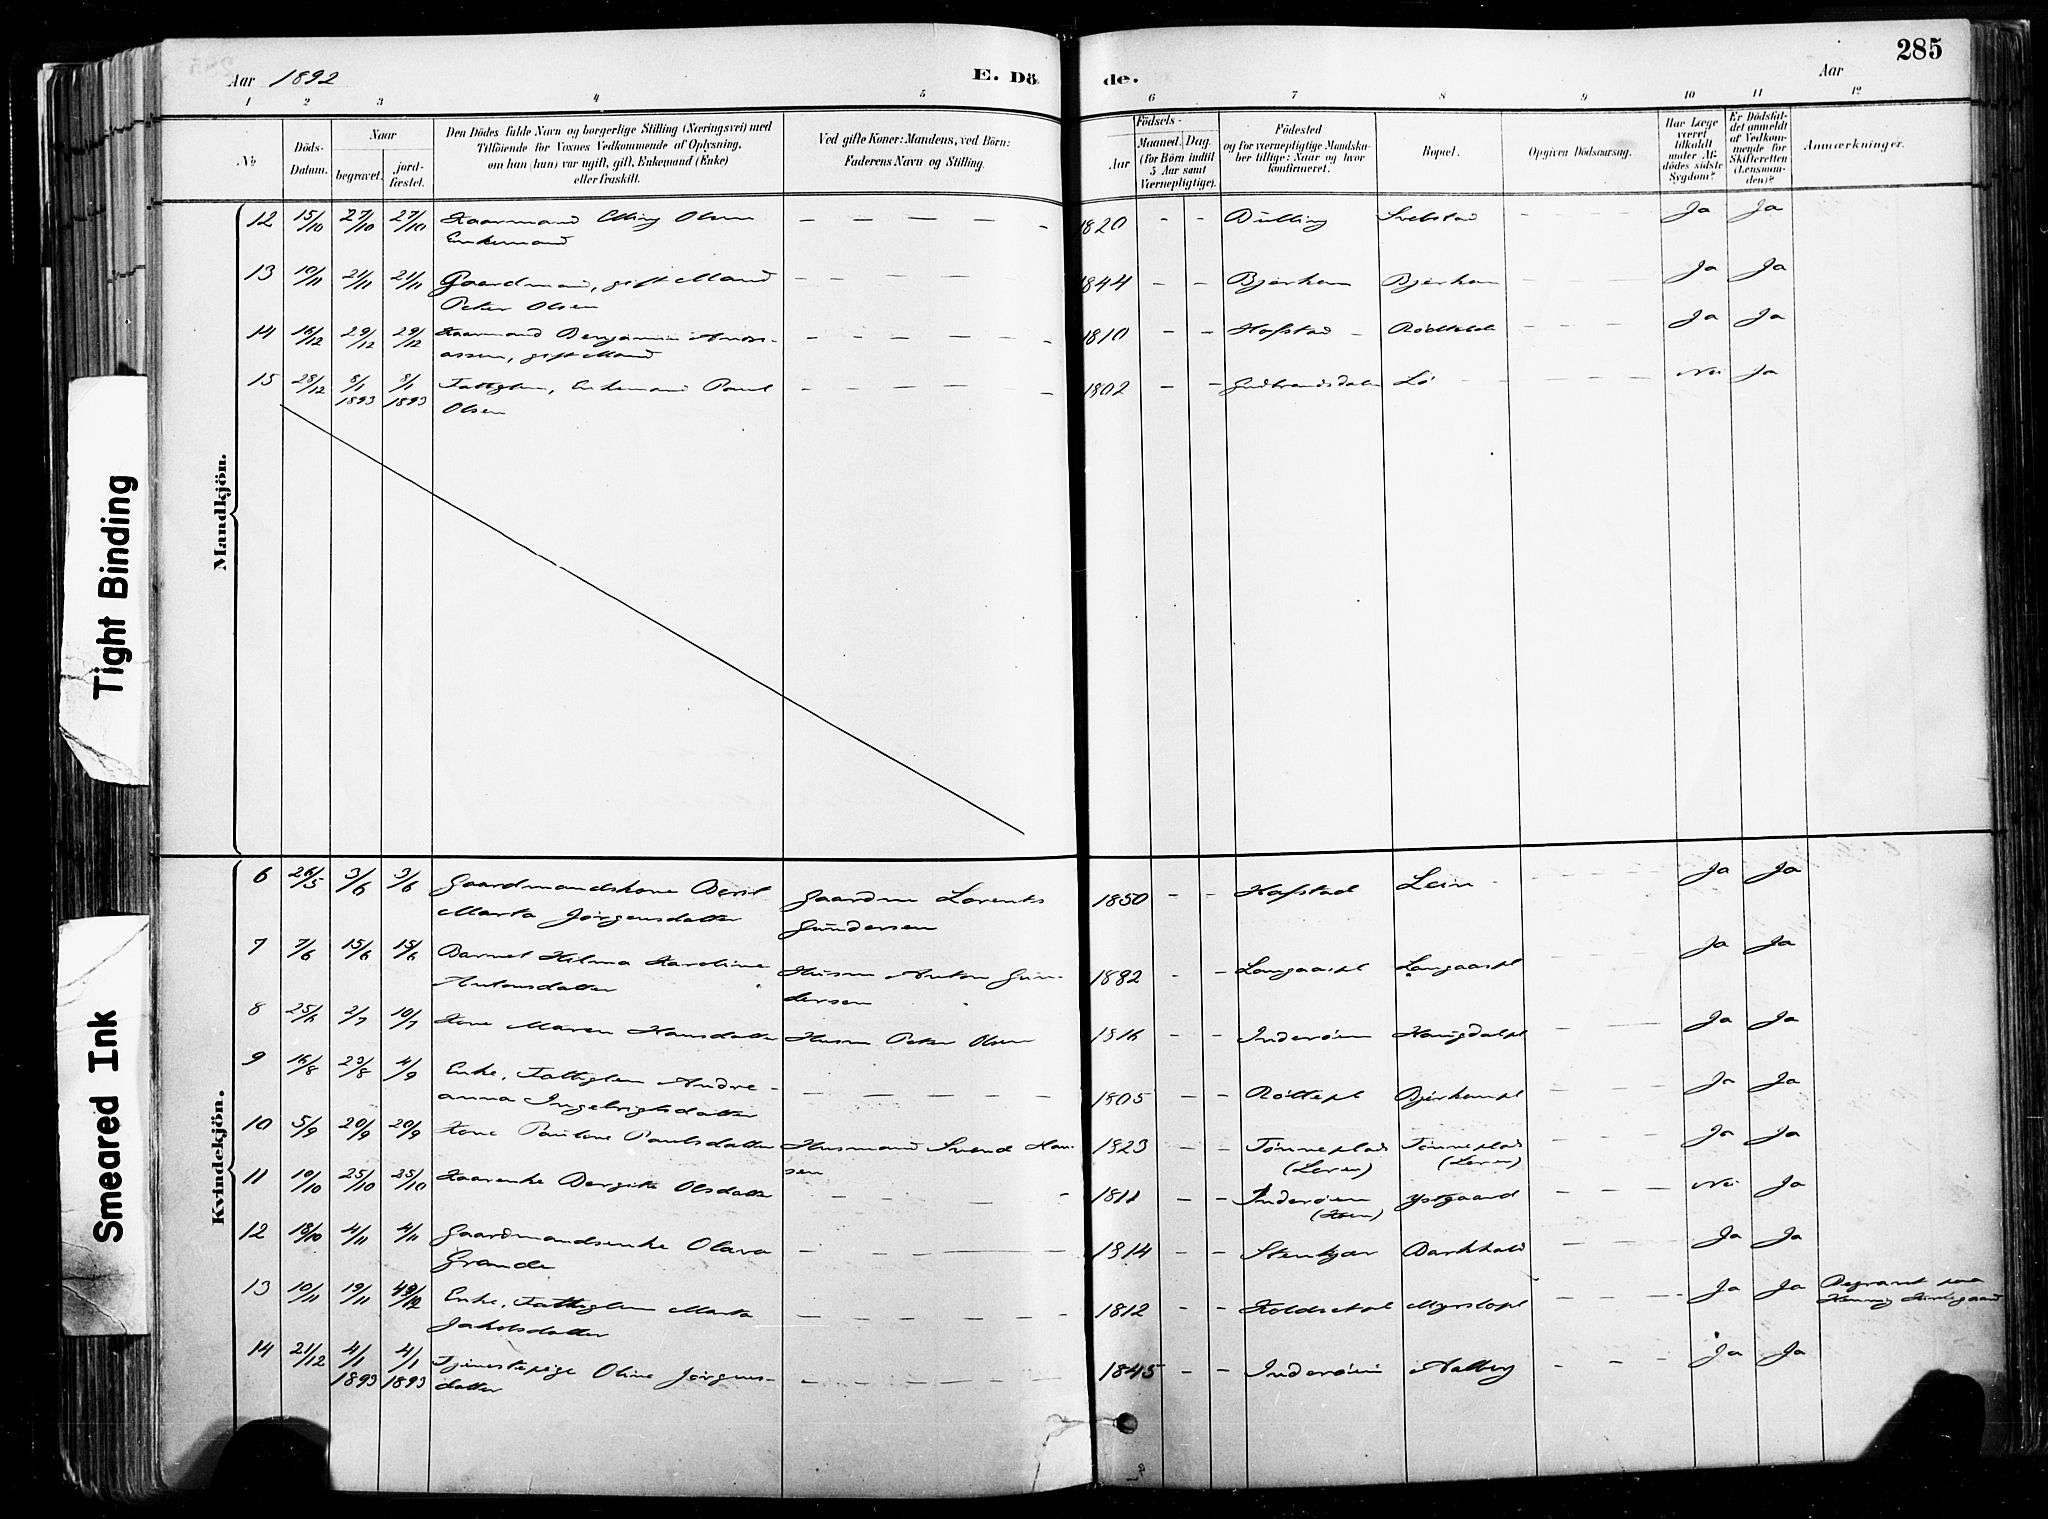 285
Aar 1892
E. Dö
de.
Aar
1 2 3 4 5 6 7 8 9 10 11 12
No
Döds-
Datum.
Naar
begravet.
jord-
fæstet.
Den Dödes fulde Navn og borgerlige Stilling (Næringsvei) med
Tilföiende for Voxnes Vedkommende af Oplysning,
om han (hun) var ugift, gift, Enkemand (Enke)
eller fraskilt.
Ved gifte Koner: Mandens, ved Börn:
Faderens Navn og Stilling.
Födsels-
Aar
Maaned.
Dag.
(for Börn indtil
5 Aar samt
Værnepligtige).
Födested
og for værnepligtige Mandska-
ber tillige: Naar og hvor
konfirmeret.
Bopæl.
Opgiven Dödsaarsag.
Har Læge
været
tilkaldt
under Af-
dödes sidste
Sygdom?
Er Dödsfal-
det anmeldt
af Vedkom-
mende for
Skifteretten
(Lensman-
den)?
Anmærkninger.
Mandkjön.
12 15/10 27/10 27/10 Kaarmand Elling Olsen — — — — — 1820 - - Dulling Svebstad - - - Ja Ja
Enkemand
13 10/11 21/11 21/11 Gaardmand, gift Mand — — — — 1844 - - Bjerkem Bjerkem - - - Ja Ja
Peter Olsen
14 16/12 29/12 29/12 Kaarmand Benjamin Andre- — — — — — 1810 - - Hofstad - - - - Ja Ja
assen, gift Mand
15 28/12 8/1 8/1 Fattiglem, Enkemand Paul — — — — — 1802 - - Gudbrandsdalen Lö - - - Nei Ja
1893 1893 Olsen
Kvindekjön.
6 26/5 3/6 3/6 Gaardmandskone Beret Gaardm Lorents 1850 - - Hofstad Lein - - - Ja Ja
Marta Jørgensdatter Gundersen
7 7/6 15/6 15/6 Barnet Hilma Karoline Husm Anton Gun- 1882 - - Langaaspl Langaaspl - - - Ja Ja
Antonsdatter dersen
8 25/6 2/7 10/7 Kone Maren Hansdatter Husm Peter Olsen 1816 - - Inderøen Haugdalpl - - - Ja Ja
9 16/8 23/8 4/9 Enke, Fattiglem Andre- — — — — — 1805 - - Bjerkempl - - - Ja Ja
anna Ingebrigtsdatter
10 5/9 20/9 20/9 Kone Pauline Paulsdatter Husmand Svend Han- 1823 - - Tønneplad Tønneplad - - - Ja Ja
(Leren) (Leren) sen
11 10/10 25/10 25/10 Kaarenke Bergite Olsdatter 1811 - - Inderøen Ystgaard - - - Nei Ja
12 18/10 4/11 4/11 Gaardmandsenke Olava — — — — 1814 - Stenkjær Barkhald - - - Ja Ja
Grande
13 10/11 19/11 Enke, Fattiglem Marta — — — — — 1812 - - Koldsetpl Myrslopl - - - Ja Ja Begravet paa
Jakobsdatter Henning Kirkegaard
14 21/12 4/1 4/1 Tjenestepige Oline Jørgens- — — — — — 1845 - - Inderøen Aalberg - - - Ja Ja
1893 1893 datter
Tight Binding
Smeared Ink